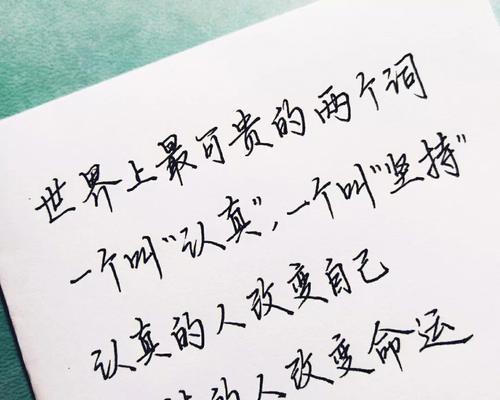 世界上最可贵的两个词
一个叫“认真”,一个叫“坚持”
认真的人改变自己
的人改变命运